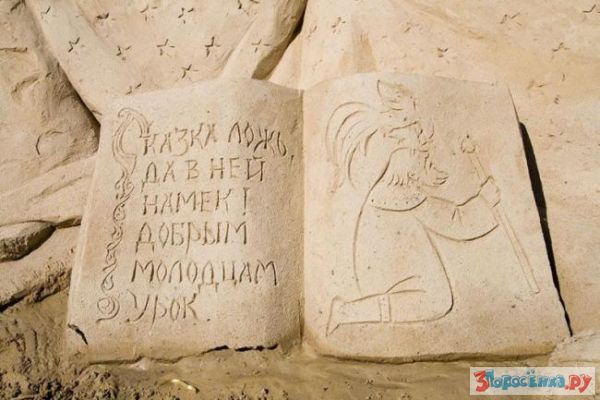 Сказка ложь,
да в ней
намек!
Добрым
молодцам
урок.
3Поросёнка.ру